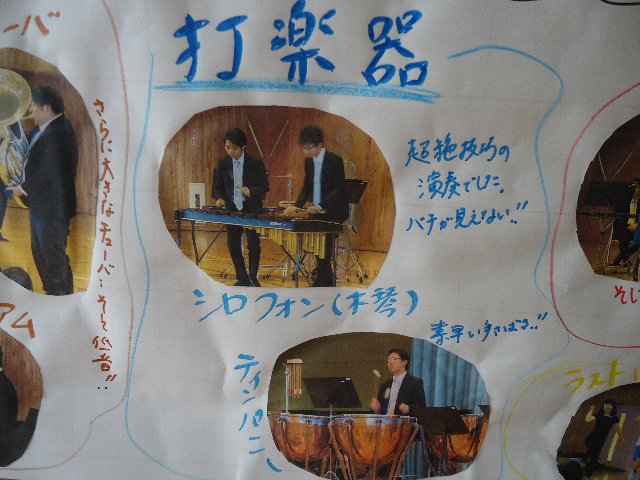 ーバ
打楽器
さらに大きなチューバ…そして低音‼
超絶技巧の
演奏でした。
バチが見えない‼
シロフォン(木琴)
素早い手さばき‼
ティンパニー
アム
ラスト